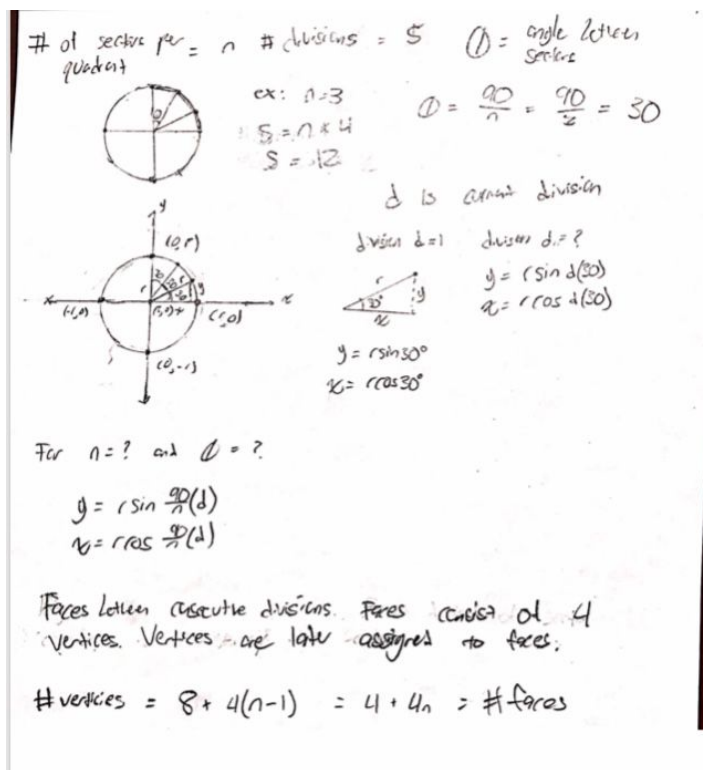 # of sectors per quadrant = n # divisions = S ∅ = angle between sectors
ex: n=3
S = n × 4
S = 12
∅ = 90/n = 90/3 = 30
d is current division
y
(0,r)
x
(-r,0)
(r,0)
(0,-r)
division d=1 division d=?
r
30°
y
x
y = r sin d(30)
x = r cos d(30)
y = r sin 30°
x = r cos 30°
For n = ? and d = ?
y = r sin 90/n (d)
x = r cos 90/n (d)
Faces between consecutive divisions. Faces consist of 4
vertices. Vertices are later assigned to faces.
# verticies = 8 + 4(n-1) = 4 + 4n = # faces